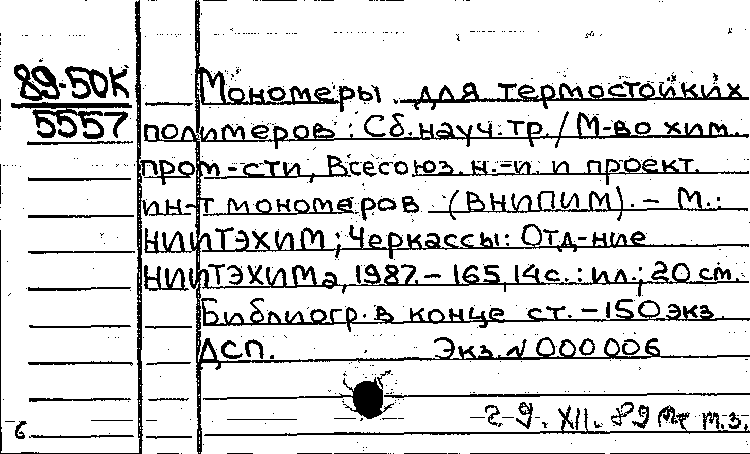 89-50К
5557
Мономеры для термостойких
полимеров : Сб. науч. тр. / М-во хим.
пром-сти, Всесоюз. н.-и. и проект.
ин-т мономеров (ВНИПИМ). – М.:
НИИТЭХИМ ; Черкассы: Отд-ние
НИИТЭХИМа, 1987. – 165, 14 с. : ил.; 20 см.
Библиогр. в конце ст. – 150 экз.
ДСП. Экз. N 000006
29. XII. 89 т.з.
6